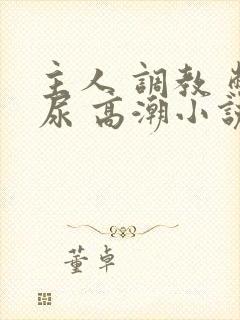 主人 調教
尿 高潮小
董卓